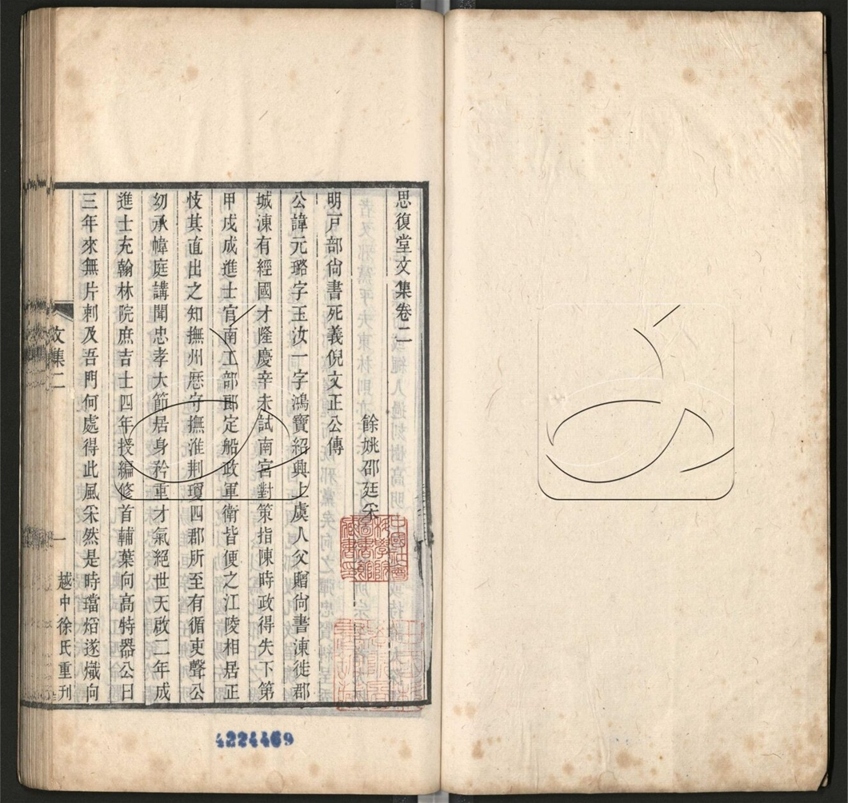 思復堂文集卷二
餘姚邵廷采
明戸部尙書死義倪文正公傳
公諱元璐字玉汝一字鴻寶紹興上虞人父贈尙書凍徙郡
城凍有經國才隆慶辛未試南宮對策指陳時政得失下第
甲戌成進士官南工部郎定船政軍衛皆便之江陵相居正
忮其直出之知撫州厯守撫淮荆瓊四郡所至有循吏聲公
幼承幃庭講聞忠孝大節居身矜重才氣絕世天啟二年成
進士充翰林院庶吉士四年授編修首輔葉向高特器公曰
三年來無片刺及吾門何處得此風采然是時璫熖遂熾向
文集二
一
越中徐氏重刋
中國社會科學院圖書館藏書之印
4224469